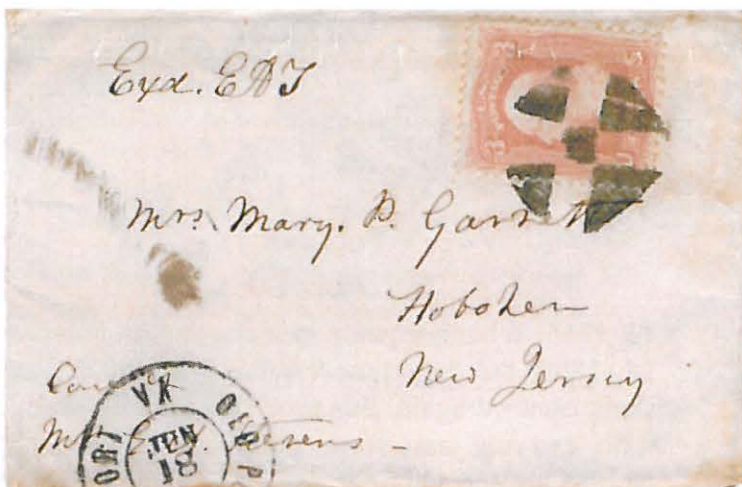 Exd. EAT
3 3
U S
Mrs. Mary. P. Garrett
Hoboken
New Jersey
Care of
Mrs E. A. Stevens -
OLD P
VA
JUN
18